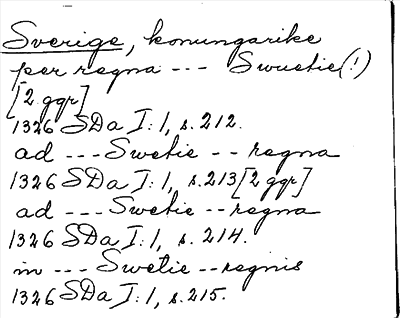 Sverige, konungarike
per regna --- Swuetie(!)
[2 ggr]
1326 SDa I:1, s.212.
ad --- Swetie -- regna
1326 SDa I:1, s.213 [2 ggr]
ad --- Swetie -- regna
1326 SDa I:1, s.214.
in --- Swetie -- regnis
1326 SDa I:1, s.215.